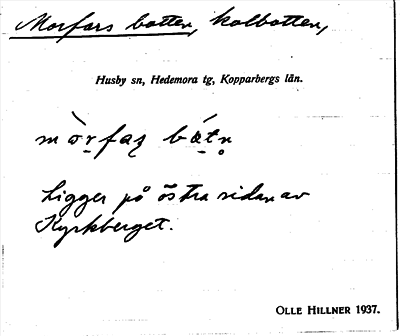 Morfars botten, kolbotten,
Husby sn, Hedemora tg, Kopparbergs län.
Ligger på östra sidan av
Kyrkberget.
OLLE HILLNER 1937.